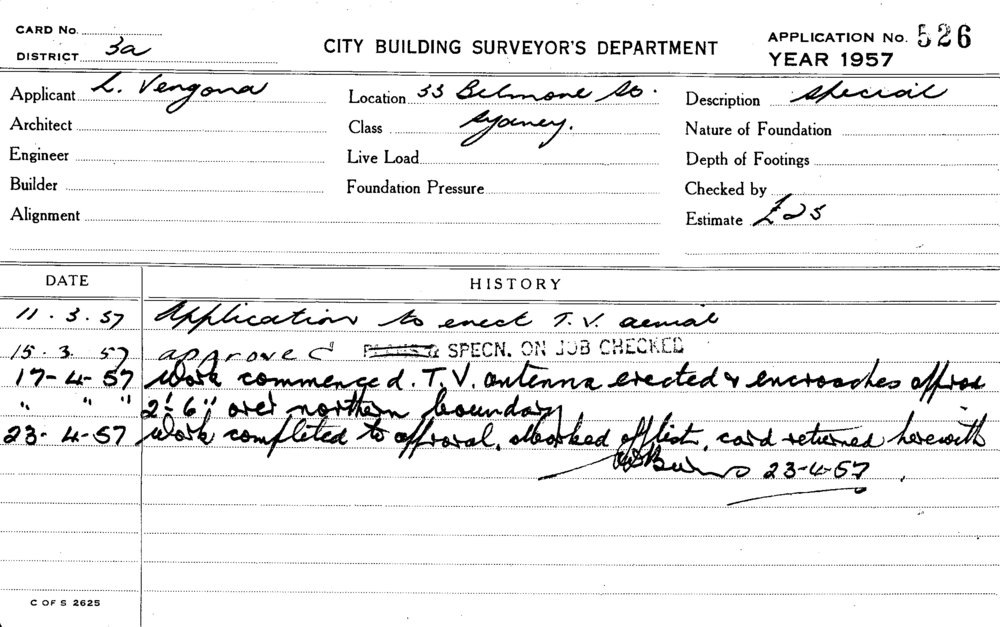 CARD No.
DISTRICT 3a
CITY BUILDING SURVEYOR'S DEPARTMENT
APPLICATION No. 526
YEAR 1957
Applicant L. Vengona
Location 33 Belmore St.
Description Special
Architect
Class Sydney.
Nature of Foundation
Engineer
Live Load
Depth of Footings
Builder
Foundation Pressure
Checked by
Alignment
Estimate £25
DATE HISTORY
11.3.57 Application to erect T.V. aerial
15.3.57 approved PLANS & SPECN. ON JOB CHECKED
17-4-57 Work commenced. T.V. antenna erected & encroaches approx
" " " 2'-6" over northern boundary
23-4-57 Work completed to approval. Marked off list, card returned herewith
23-4-57
C OF S 2625